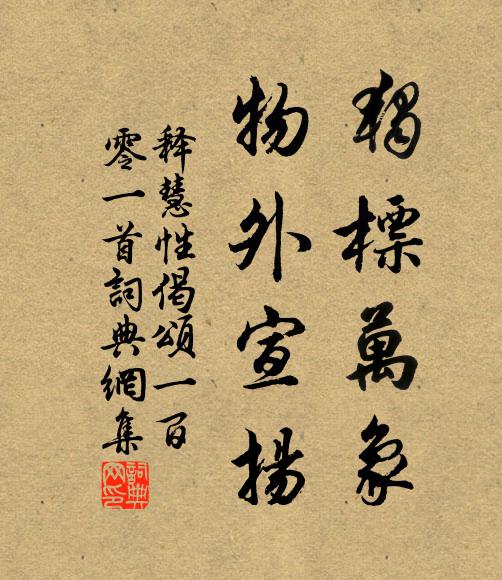 獨標萬象
物外宣揚
释慧性偈頌一百
零一首詞典網集
詞典
网印